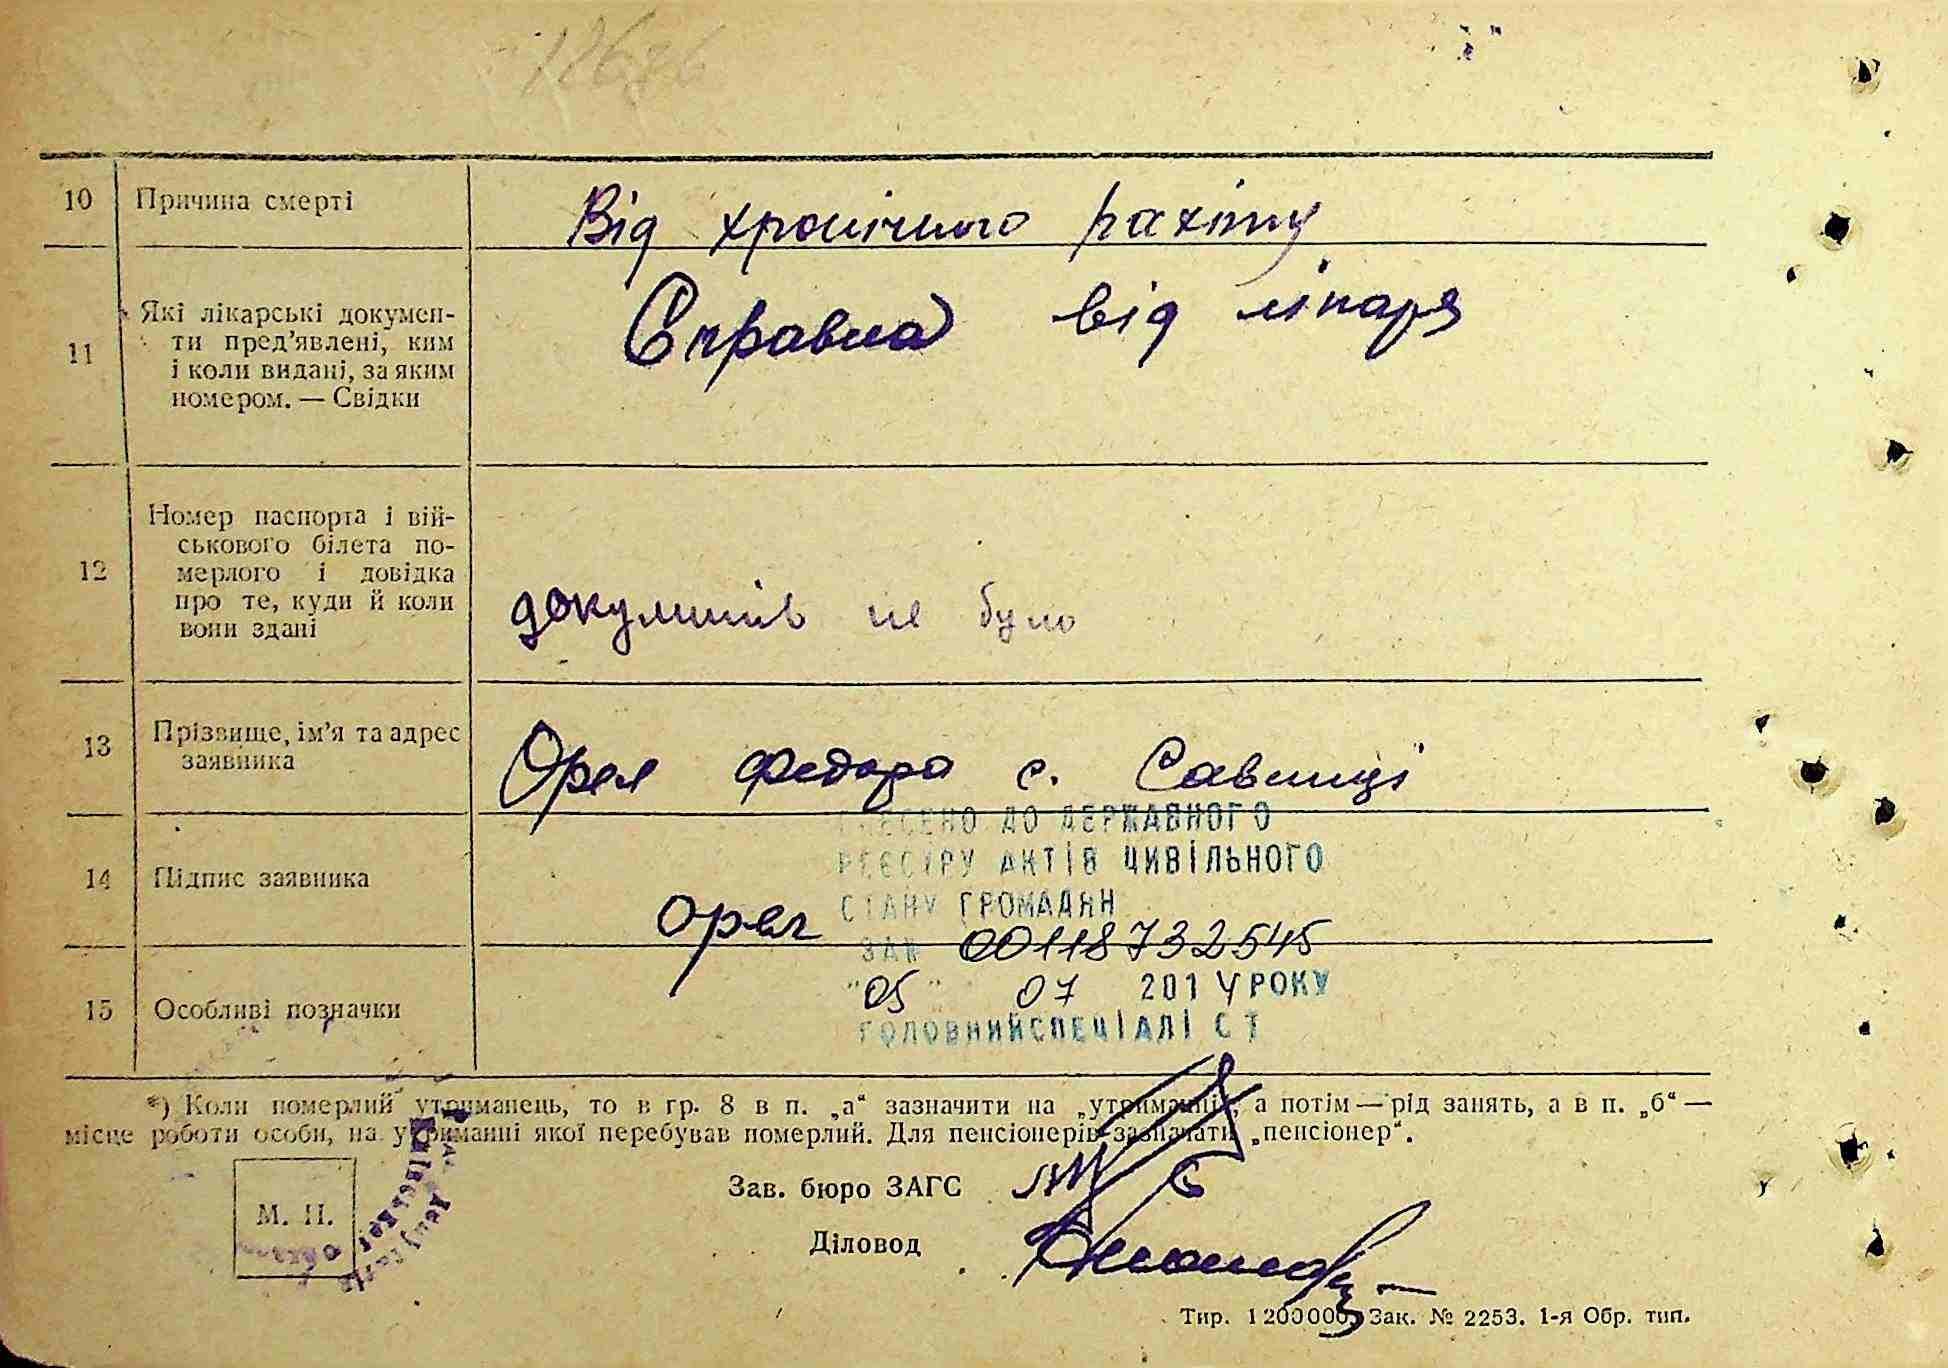 12686
10 Причина смерті Від хронічного рахіту
11 Які лікарські докумен-
ти пред'явлені, ким
і коли видані, за яким
номером. — Свідки
Справка від лікаря
12 Номер паспорта і вій-
ськового білета по-
мерлого і довідка
про те, куди й коли
вони здані
документів не було
13 Прізвище, ім'я та адрес
заявника
Орел Федора с. Савинці
ВНЕСЕНО ДО ДЕРЖАВНОГО
РЕЄСТРУ АКТІВ ЦИВІЛЬНОГО
СТАНУ ГРОМАДЯН
14 Підпис заявника Орел
ЗА№ 00118732545
"05" 07 2014 РОКУ
ГОЛОВНИЙ СПЕЦІАЛІСТ
15 Особливі позначки
*) Коли померлий утриманець, то в гр. 8 в п. „а“ зазначити на „утриманні“, а потім — рід занять, а в п. „б“ —
місце роботи особи, на утриманні якої перебував померлий. Для пенсіонерів зазначати „пенсіонер“.
Зав. бюро ЗАГС
М. П.
Діловод
Тир. 1200000. Зак. № 2253. 1-я Обр. тип.